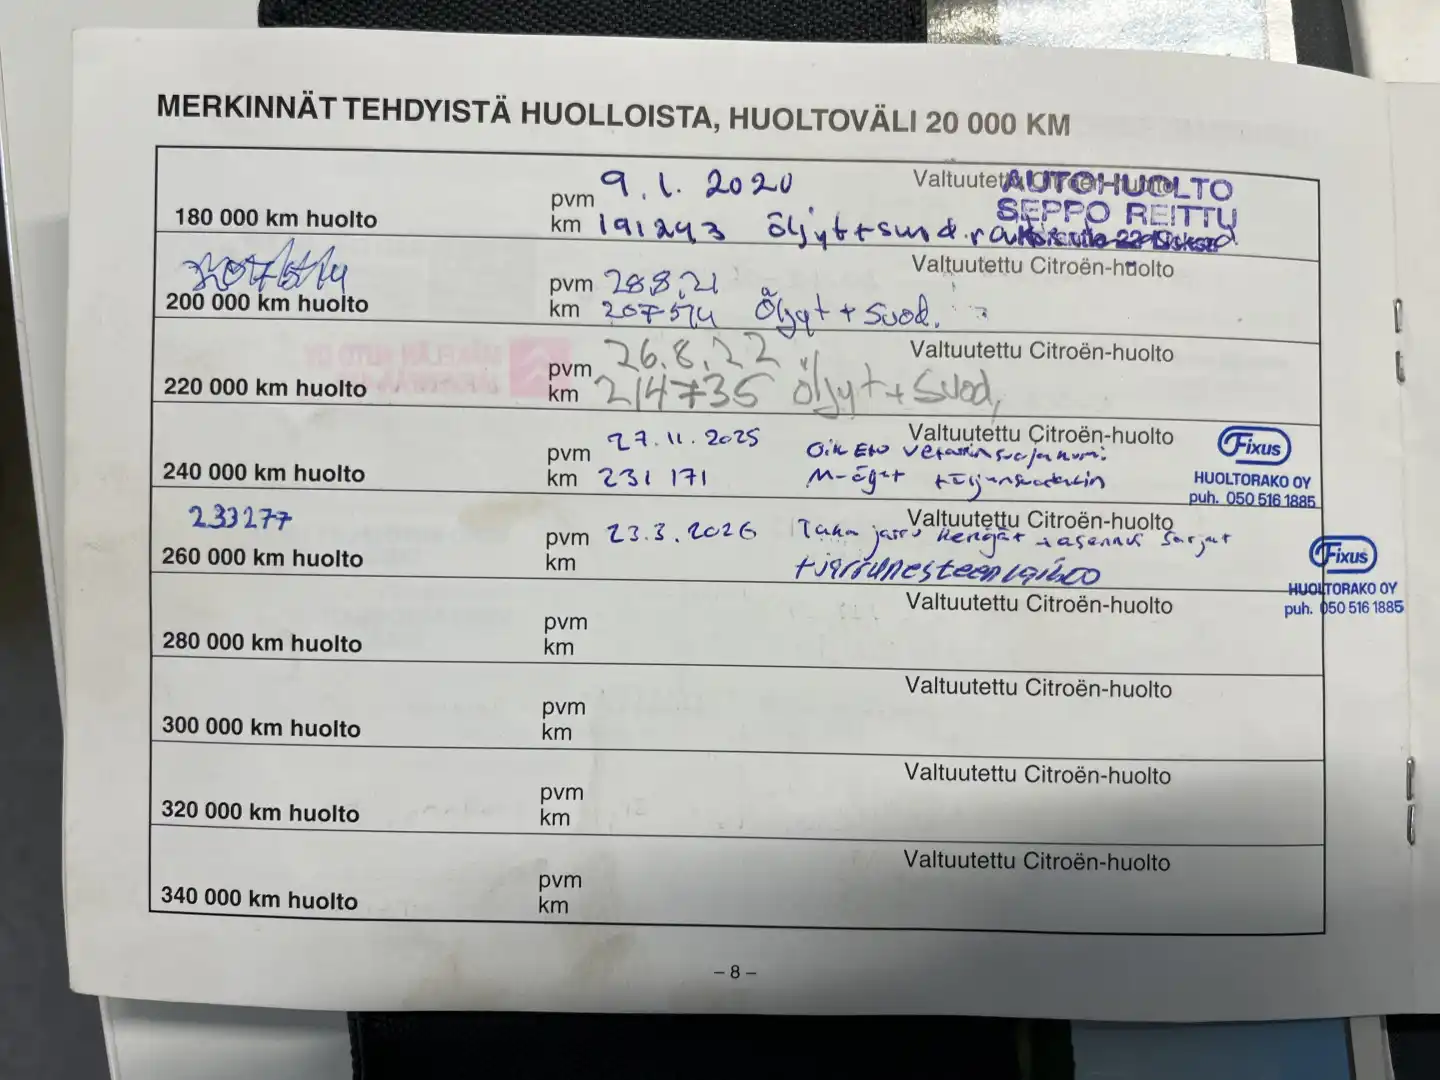 MERKINNÄT TEHDYISTÄ HUOLLOISTA, HUOLTOVÄLI 20 000 KM
180 000 km huolto
pvm 9.1.2020
km 191243 öljyt + suod.
Valtuutettu Citroën-huolto
AUTOHUOLTO
SEPPO REITTU
200 000 km huolto
pvm 28.8.21
km 207514 Öljyt + Suod.
Valtuutettu Citroën-huolto
220 000 km huolto
pvm 26.8.22
km 214735 öljyt + Suod,
Valtuutettu Citroën-huolto
240 000 km huolto
pvm 27.11.2025
km 231 171
Valtuutettu Citroën-huolto
Oik Etu vetarin suojakumi
M-öljyt
Fixus
HUOLTORAKO OY
puh. 050 516 1885
233277
260 000 km huolto
pvm 23.3.2026
km
Valtuutettu Citroën-huolto
Taka jarru kengät + asennus sarjat
+ jarrunesteen vaihto
Fixus
HUOLTORAKO OY
puh. 050 516 1885
280 000 km huolto
pvm
km
Valtuutettu Citroën-huolto
300 000 km huolto
pvm
km
Valtuutettu Citroën-huolto
320 000 km huolto
pvm
km
Valtuutettu Citroën-huolto
340 000 km huolto
pvm
km
Valtuutettu Citroën-huolto
– 8 –